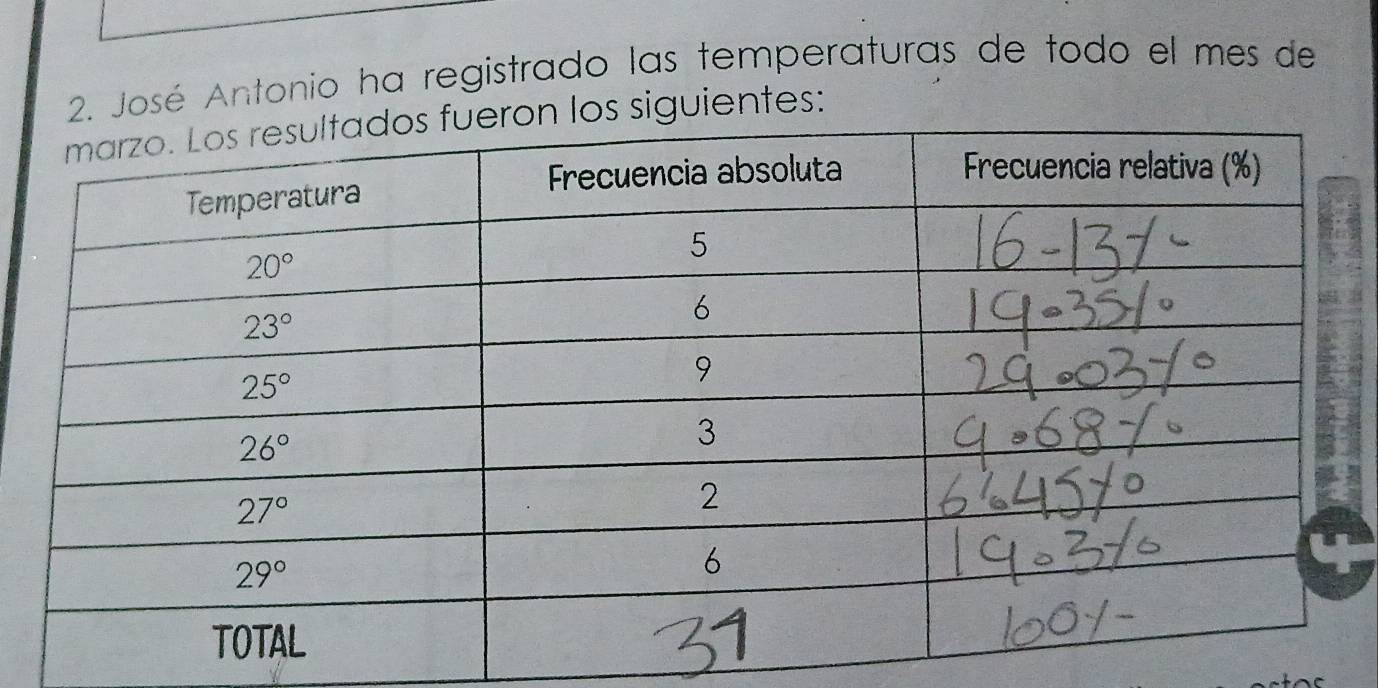 2. José Antonio ha registrado las temperaturas de todo el mes de
marzo. Los resultados fueron los siguientes:
Temperatura Frecuencia absoluta Frecuencia relativa (%)
20° 5 16-13%
23° 6 19.35%
25° 9 29.03%
26° 3 9.68%
27° 2 6.45%
29° 6 19.3%
TOTAL 31 100%